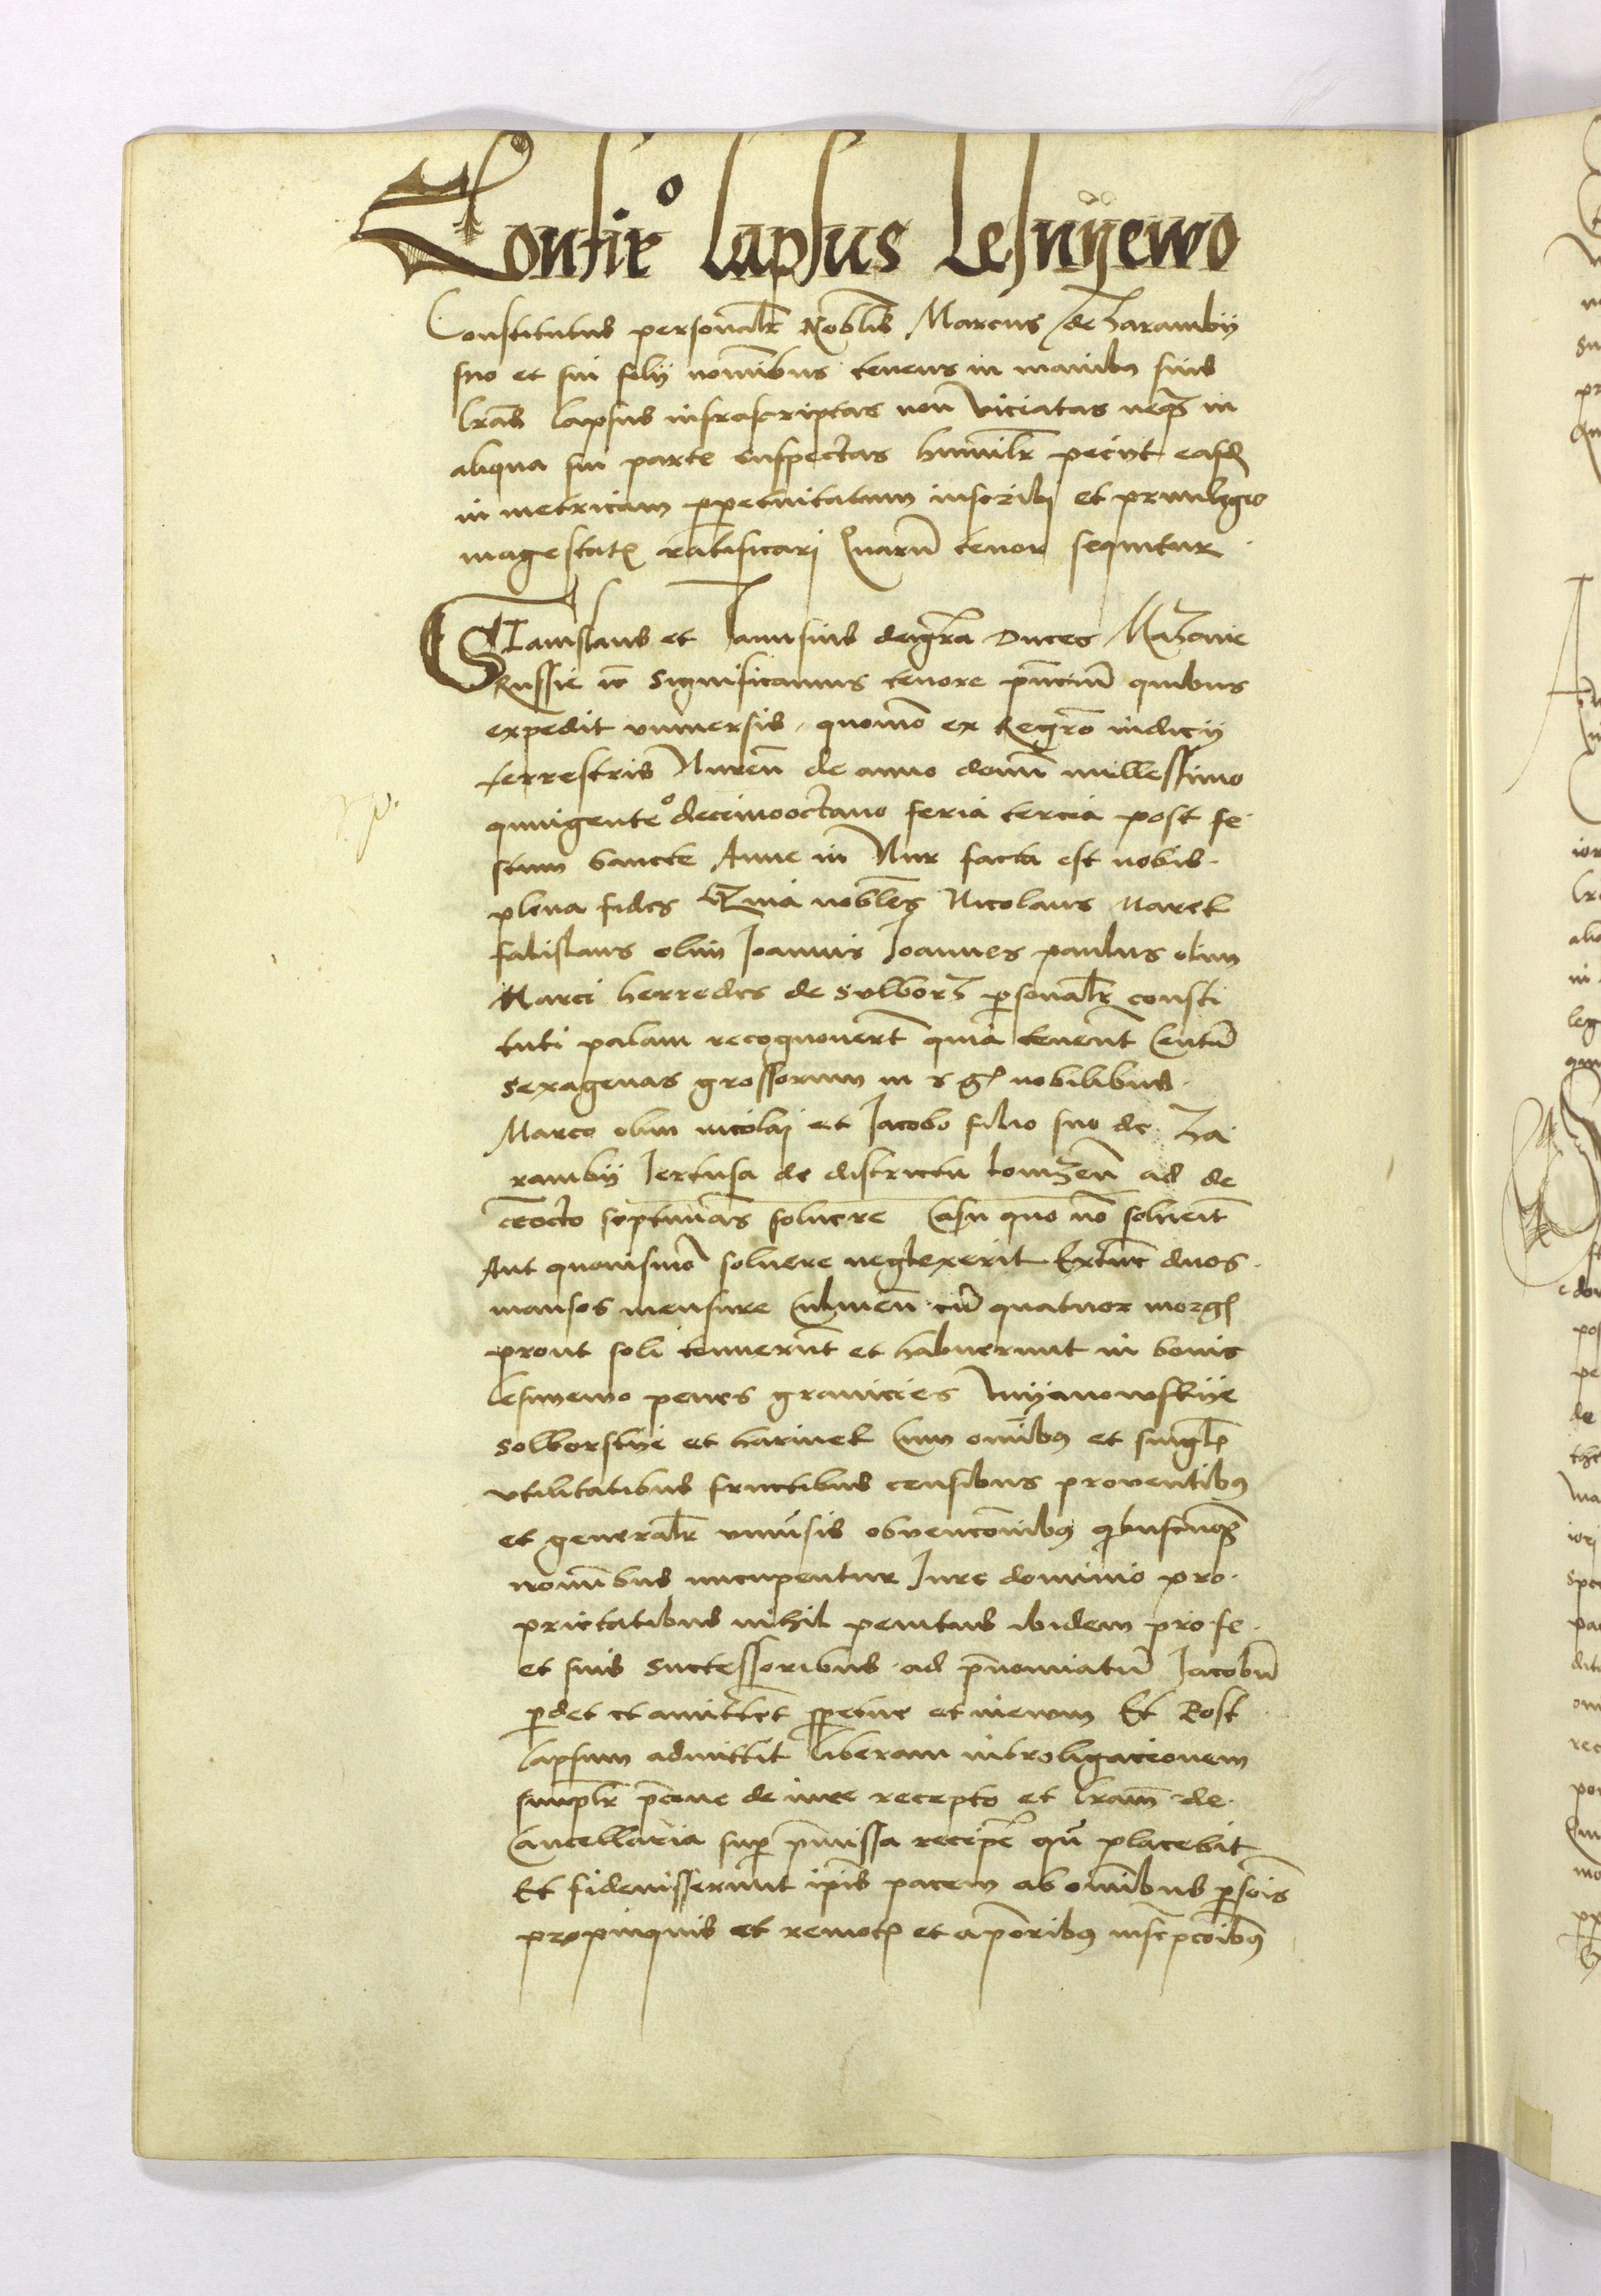 Confir⁰ lapsus Lesnyewo
Constitutus personalr Noblis Marcus de Zarambij
suo et sui filij nominibus tenens in manibus suis
lras lapsus infrascriptas non viciatas neqz in
aliqua sui parte suspectas humilr peciit easd
in metricam perpetuitatum inscribi et privilegio
magestatis ratificari Quarum tenor sequitur
Stanislaus et Janusius dei gra Duces Mazovie
Russie etc Significamus tenore pntium quibus
expedit universis, quomo ex Regro iudicij
terrestris Nuren de anno domi millessimo
quingente⁰ decimooctavo feria tercia post fe
stum Sancte Anne in Nur facta est nobis
plena fides Quia nobles Nicolaus Narek
fabislaus olim Joannis Joannes paulus olim
Marci herredes de Sulborz personalr consti
tuti palam recognovert quia tenent Centu
sexagenas grossorum in s g nobilibus
Marco olim nicolaj et Jacobo filio suo de Za
rambij Jertusa de districtu lomzen ad de
ceocto septimas solvere Casu quo no solveit
Aut quovismo solvere neglexerit Extunc duos
mansos mensure Culmen cu quatuor morg
prout soli tenuerunt et habuerunt in bonis
lesnyewo penes granicies Myanowskye
Solborskye et harinek Cum omibus et singl
utilitatibus fructibus censibus proventibus
et generalr universis obvencoibus quibuscunqz
nomibus nucupentur Jure dominio pro
prietatibus nihil penitus ibidem pro se
et suis Successoribus ad prenomiatu Jacobu
perdet et amittet perpetue et inevum Et Post
lapsum admittit liberam introligacionem
simplr precone de iure recepto et lram de
Cancellaria super premissa recipere qu placebit
Et fideiusserunt ipis pacem ab omibus persois
propinquis et remotis et aprioribus inscrpcoibus